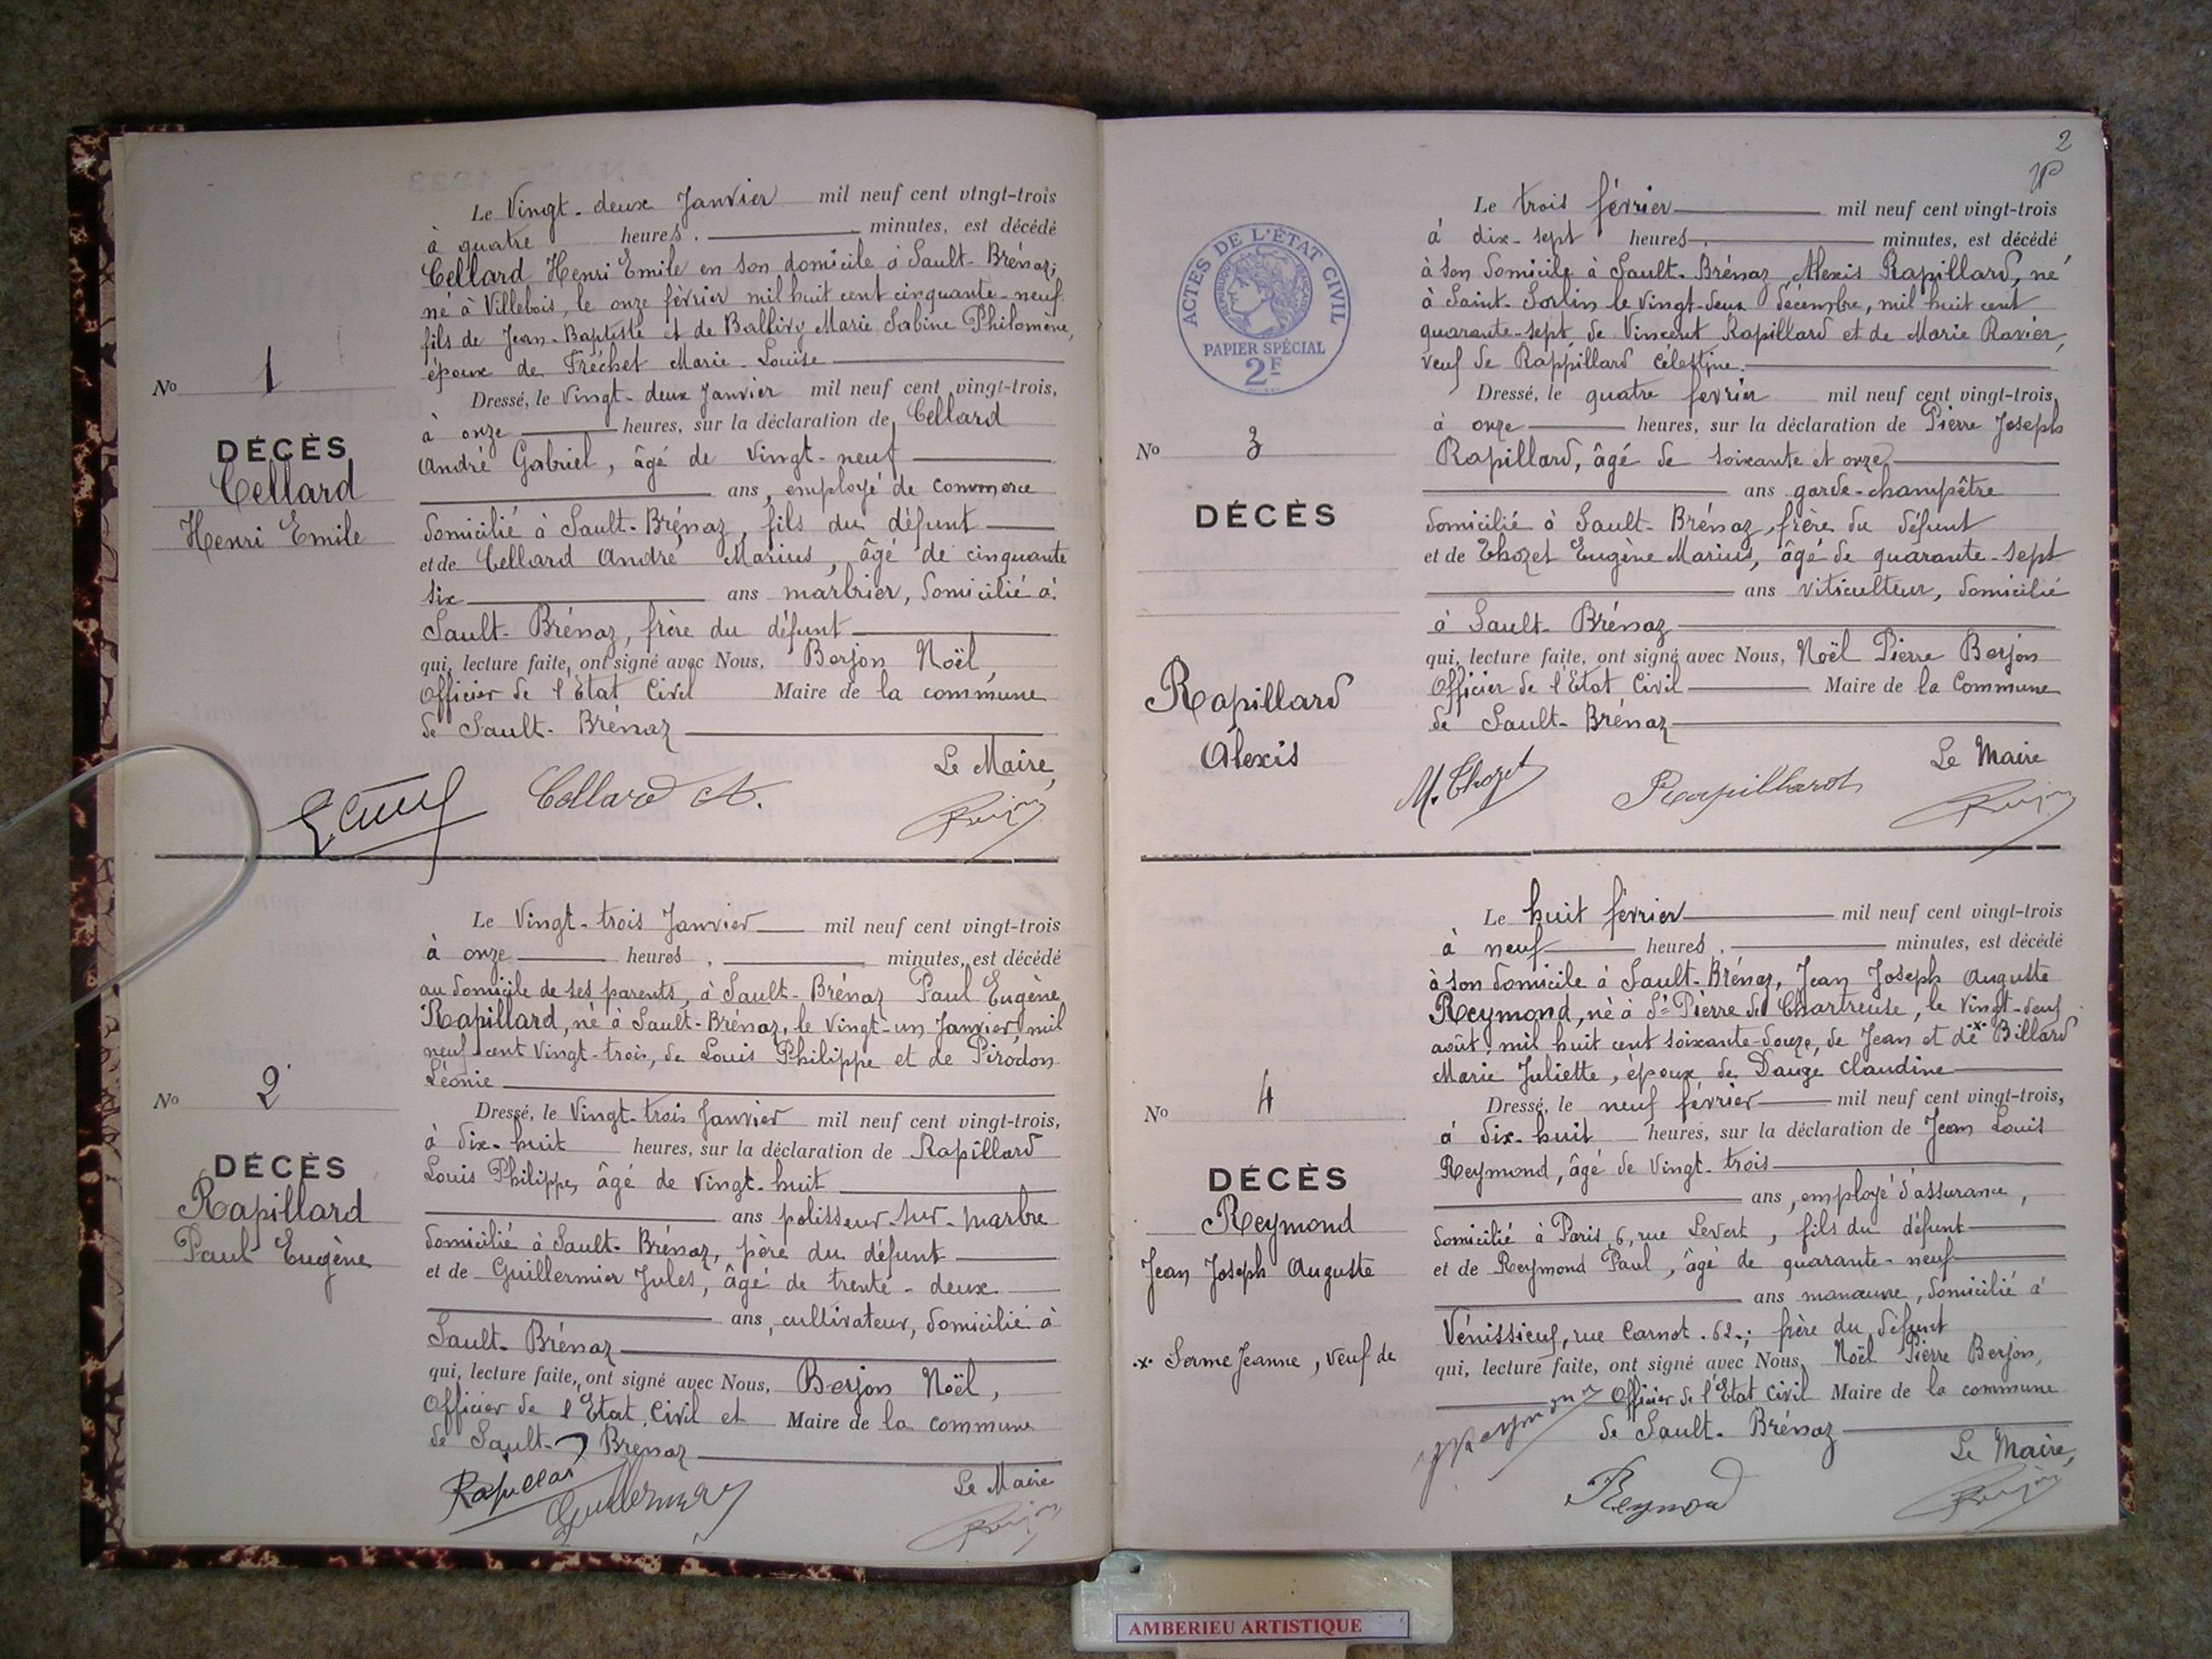 Le Vingt-deux Janvier mil neuf cent vingt-trois
à quatre heures, minutes, est décédé
Cellard Henri Emile en son domicile à Sault-Brénaz;
né à Villebois, le onze février mil huit cent cinquante-neuf
fils de Jean-Baptiste et de Ballivy Marie Sabine Philomène,
époux de Fréchet Marie-Louise
No 1
Dressé, le Vingt-deux Janvier mil neuf cent vingt-trois,
à onze heures, sur la déclaration de Cellard
DÉCÈS
André Gabriel, âgé de Vingt-neuf
Cellard
ans, employé de commerce
Henri Emile
domicilié à Sault-Brénaz, fils du défunt
et de Cellard André Marius, âgé de cinquante
six ans marbrier, domicilié à
Sault-Brénaz, frère du défunt
qui, lecture faite, ont signé avec Nous, Berjon Noël,
Officier de l'Etat Civil Maire de la commune
de Sault-Brénaz
Le Maire,
Cellard A.
Le Vingt-trois Janvier mil neuf cent vingt-trois
à onze heures, minutes, est décédé
au domicile de ses parents, à Sault-Brénaz Paul Eugène
Rapillard, né à Sault-Brénaz, le Vingt-un Janvier, mil
neuf cent Vingt-trois, de Louis Philippe et de Pirodon
Léonie
No 2
Dressé, le Vingt-trois Janvier mil neuf cent vingt-trois,
à dix-huit heures, sur la déclaration de Rapillard
DÉCÈS
Louis Philippe, âgé de Vingt-huit
Rapillard
ans polisseur-sur-marbre
Paul Eugène
domicilié à Sault-Brénaz, père du défunt
et de Guillermier Jules, âgé de trente-deux
ans, cultivateur, domicilié à
Sault-Brénaz
qui, lecture faite, ont signé avec Nous, Berjon Noël,
Officier de l'Etat Civil et Maire de la commune
de Sault-Brénaz
Le Maire
Rapillard
2
Le trois février mil neuf cent vingt-trois
à dix-sept heures, minutes, est décédé
à son domicile à Sault-Brénaz, Alexis Rapillard, né
à Saint-Sorlin le vingt-deux décembre, mil huit cent
quarante-sept, de Vincent Rapillard et de Marie Ravier,
veuf de Rappillard Célestine.
ACTES DE L'ÉTAT CIVIL
RÉPUBLIQUE FRANÇAISE
PAPIER SPÉCIAL
2F
Dressé, le quatre février mil neuf cent vingt-trois,
No 3
à onze heures, sur la déclaration de Pierre Joseph
Rapillard, âgé de soixante et onze
ans garde-champêtre
DÉCÈS
domicilié à Sault-Brénaz, frère du défunt
et de Thozet Eugène Marius, âgé de quarante-sept
ans viticulteur, domicilié
à Sault-Brénaz
qui, lecture faite, ont signé avec Nous, Noël Pierre Berjon
Officier de l'Etat Civil Maire de la Commune
Rapillard
de Sault-Brénaz
Alexis
Le Maire
M. Thozet
Rapillard
Le huit février mil neuf cent vingt-trois
à neuf heures, minutes, est décédé
à son domicile à Sault-Brénaz, Jean Joseph Auguste
Reymond, né à St Pierre de Chartreuse, le Vingt-deux
août, mil huit cent soixante-douze, de Jean et de × Billard
Marie Juliette, époux de Dauge Claudine
No 4
Dressé, le neuf février mil neuf cent vingt-trois,
à dix-huit heures, sur la déclaration de Jean Louis
Reymond, âgé de Vingt-trois
DÉCÈS
ans, employé d'assurance,
Reymond
domicilié à Paris, 6, rue Levert, fils du défunt
Jean Joseph Auguste
et de Reymond Paul, âgé de quarante-neuf
ans manœuvre, domicilié à
Vénissieux, rue Carnot. 62.; frère du défunt
× Serme Jeanne, Veuf de
qui, lecture faite, ont signé avec Nous, Noël Pierre Berjon,
Officier de l'Etat Civil Maire de la commune
de Sault-Brénaz
Le Maire,
Reymond
AMBERIEU ARTISTIQUE